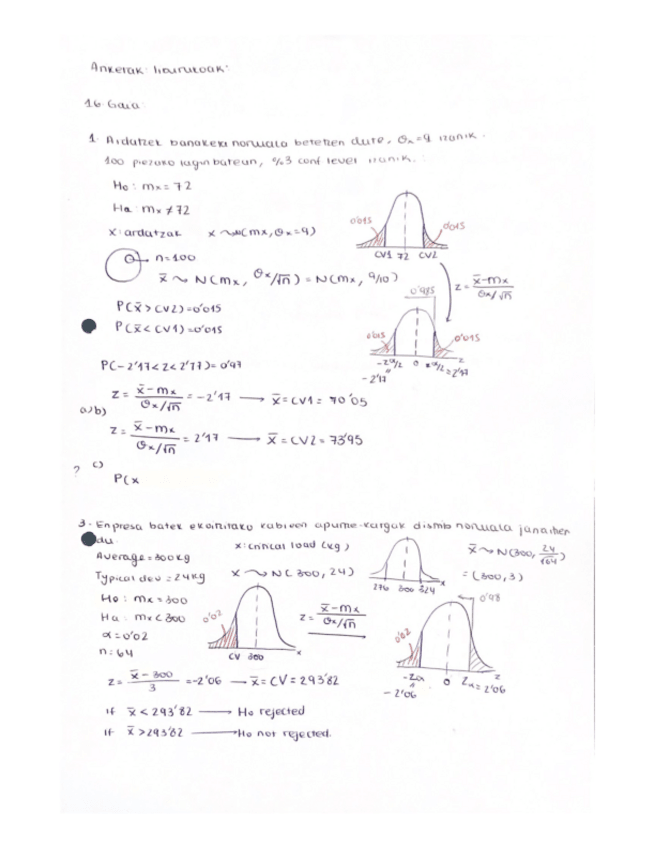 Ariketak: hourukoak:
16 Gaia:
1. Ardatzek banaketa normala betetzen dute, σx=9 izanik.
100 piezako lagin batean, %3 conf level izanik.
Ho: mx = 72
Ha: mx ≠ 72
x: ardatzak x ~ N(mx, σx=9)
n=100
x̄ ~ N(mx, σx/√n) = N(mx, 9/10)
0'015 0'015
CV1 72 CV2
z = x̄-mx / σx/√n
0'985
P(x̄ > CV2) = 0'015
P(x̄ < CV1) = 0'015
0'015 0'015
-zα/2 0 zα/2 = 2'17 z
-2'17
P(-2'17 < z < 2'17) = 0'97
z = x̄-mx / σx/√n = -2'17 → x̄ = CV1 = 70'05
a) b)
z = x̄-mx / σx/√n = 2'17 → x̄ = CV2 = 73'95
? c)
P(x
3. Enpresa batek ekoitzitako kableen apurte-kargak distrib normala
du.
x: critical load (kg)
Average = 300 kg
Typical dev = 24kg x ~ N(300, 24)
276 300 324 x
x̄ ~ N(300, 24/√64)
= (300, 3)
Ho: mx = 300
Ha: mx < 300
α = 0'02
n = 64
0'02
CV 300 x
z = x̄-mx / σx/√n
0'98
0'02
-zα 0 zα = 2'06 z
-2'06
z = x̄-300 / 3 = -2'06 → x̄ = CV = 293'82
if x̄ < 293'82 → Ho rejected
if x̄ > 293'82 → Ho not rejected.